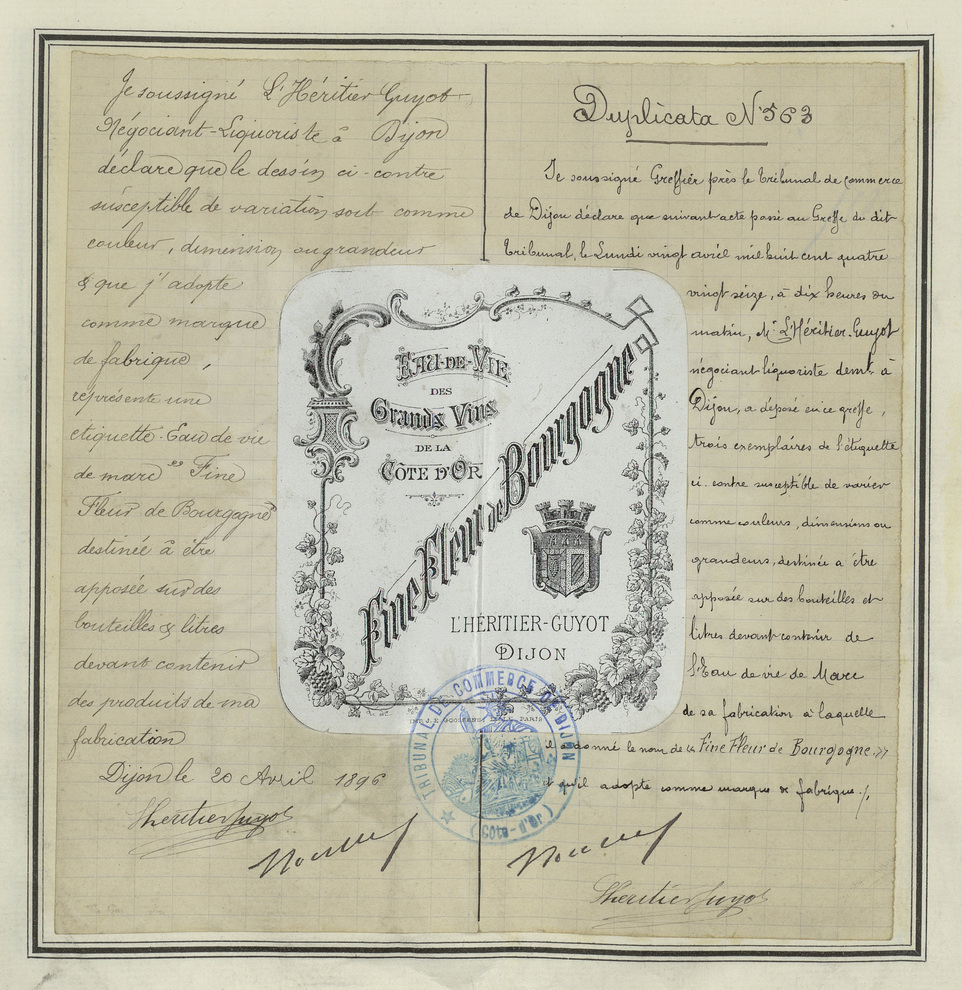 Je soussigné L'Héritier Guyot
Négociant-Liquoriste à Dijon
déclare que le dessin ci-contre
susceptible de variation soit comme
couleur, dimension ou grandeur
& que j'adopte
comme marque
de fabrique,
représente une
etiquette Eau de vie
de marc "Fine
Fleur de Bourgogne"
destinée à être
apposée sur des
bouteilles & litres
devant contenir
des produits de ma
fabrication
Dijon le 20 Avril 1896
Lheritier Guyot
Duplicata N° 563
Je soussigné Greffier près le Tribunal de commerce
de Dijon déclare que suivant acte passé au Greffe du dit
Tribunal, le Lundi vingt avril mil huit cent quatre
vingt seize, à dix heures du
matin, Mr L'Héritier-Guyot
négociant liquoriste demt à
Dijon, a déposé en ce greffe,
trois exemplaires de l'étiquette
ci-contre susceptible de varier
comme couleurs, dimensions ou
grandeurs, destinée a être
apposée sur des bouteilles et
litres devant contenir de
l'Eau de vie de Marc
de sa fabrication à laquelle
il a donné le nom de « Fine Fleur de Bourgogne »
et qu'il adopte comme marque de fabrique ./.
Lheritier Guyot
EAU-DE-VIE
DES
Grands Vins
DE LA
CÔTE D'OR
Fine Fleur de Bourgogne
L'HÉRITIER-GUYOT
DIJON
PARIS
TRIBUNAL DE COMMERCE DE DIJON
(COTE-D'OR)